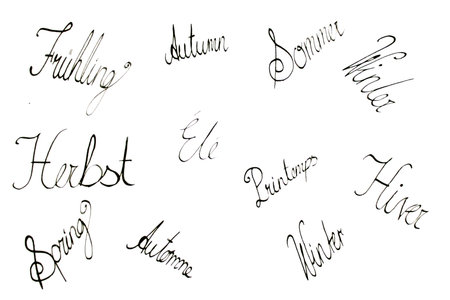 Frühling
Autumn
Sommer
Winter
Herbst
Éte
Printemps
Hiver
Spring
Automne
Winter